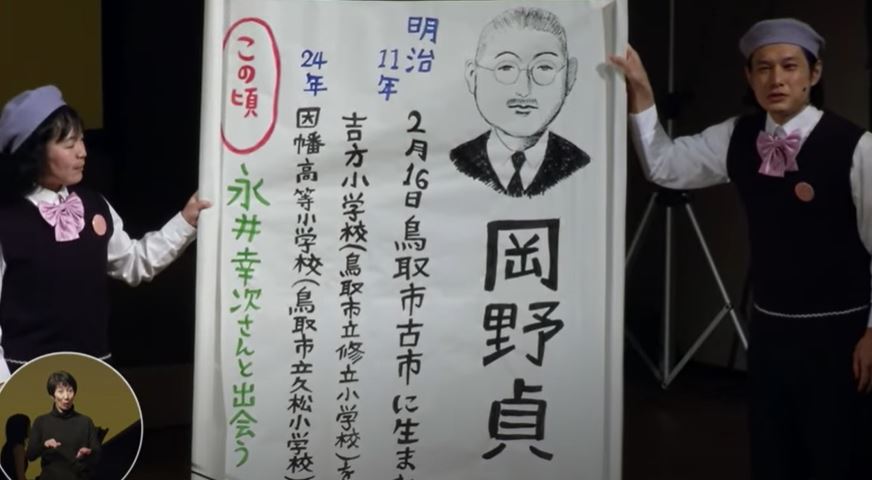 岡野貞
明治
11年
2月16日鳥取市古市に生ま
吉方小学校(鳥取市立修立小学校)を
24年
因幡高等小学校(鳥取市立久松小学校)
この頃
永井幸次さんと出会う